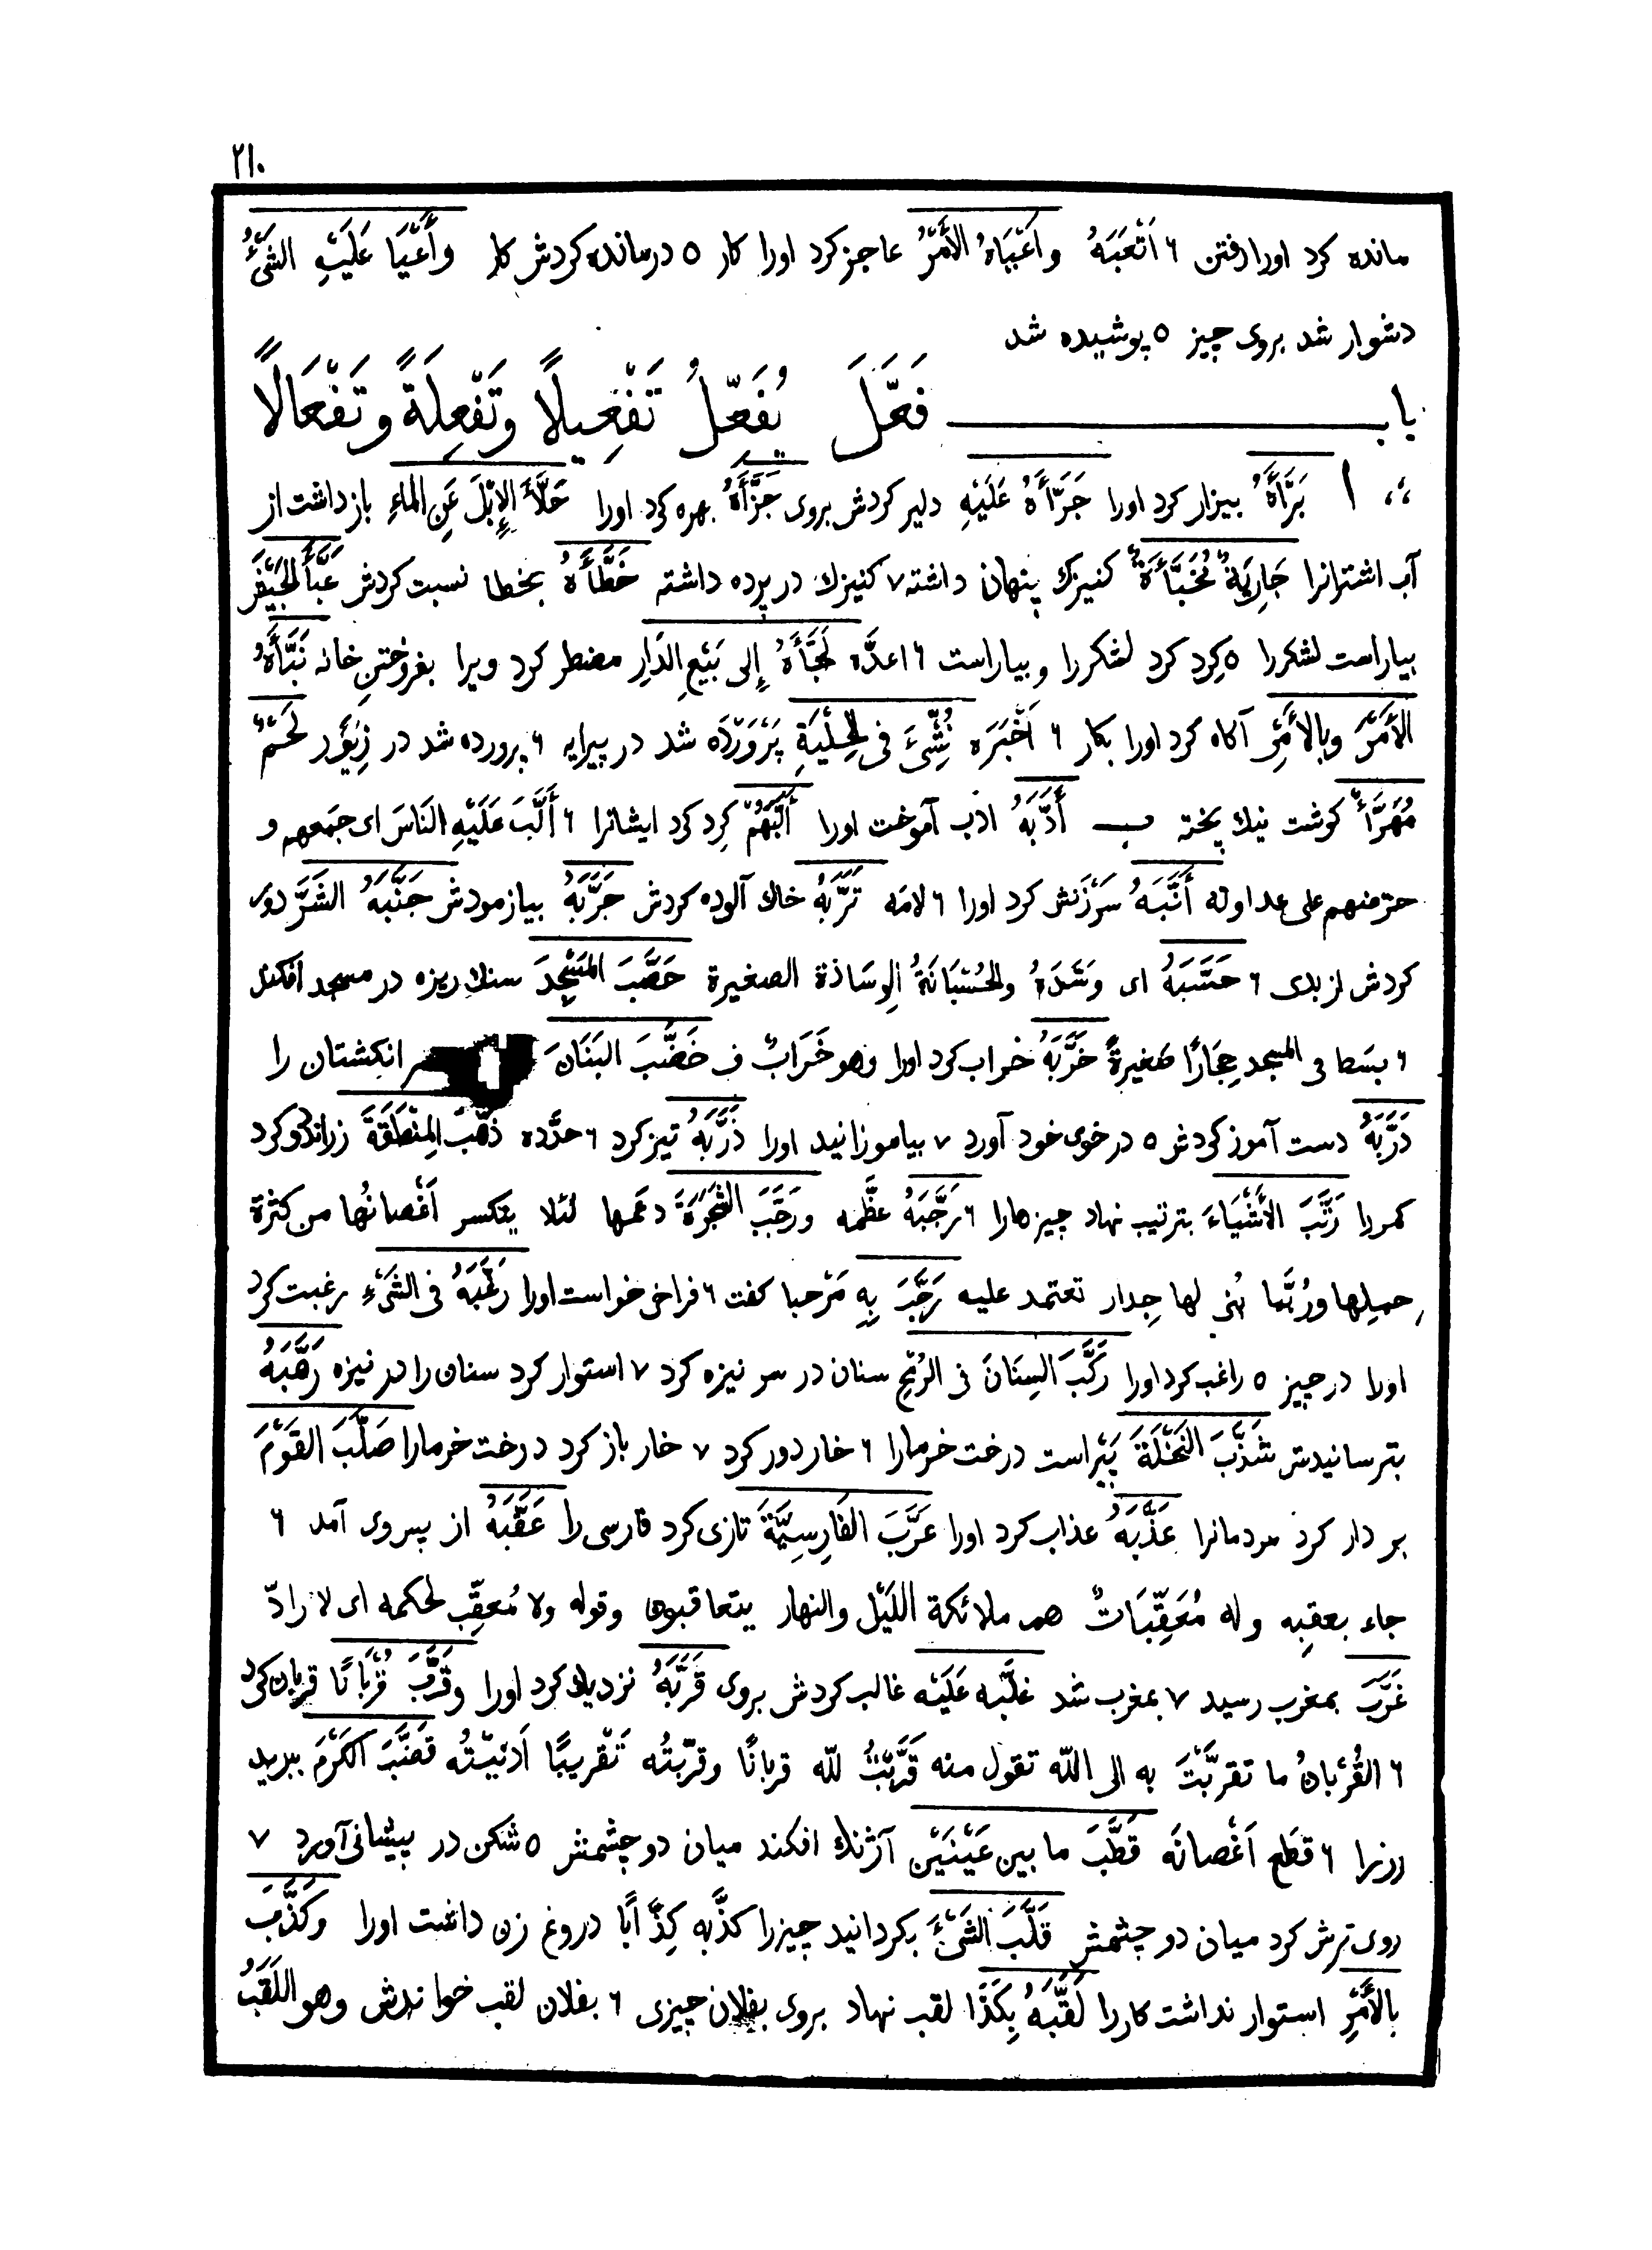 ٢١٠
مانده كرد اورا رفتن ٦ اَتْعَبَهُ وأَعْيَاهُ الأَمْرُ عاجز كرد اورا كار ٥ درمانده كردش كار وأَعْيَا عَلَيْهِ الشَّىْءُ
دشوار شد بروى چيز ٥ پوشيده شد
باب فَعَّلَ يُفَعِّلُ تَفْعِيلًا وتَفْعِلَةً وتَفْعَالًا
ا بَرَّأَهُ بيزار كرد اورا جَرَّأَهُ عَلَيْهِ دلير كردش بروى جَزَّأَهُ بهره كرد اورا حَلَّأَ الإِبْلَ عَنِ الماءِ بازداشت از
آب اشترانرا جَارِيَةٌ مُخَبَّأَةٌ كنيزك پنهان داشته ٧ كنيزك در پرده داشته خَطَّأَهُ بخطا نسبت كردش عَبَّأَ الجَيْشَ
بياراست لشكررا ٥ كِرد كرد لشكررا وبياراست ٦ اعدَّه لَجَّأَهُ إِلى بَيْعِ الدَّارِ مضطر كرد ويرا بفروختنِ خانه نَبَّأَهُ
الأَمْرَ وبالأَمْرِ آكاه كرد اورا بكار ٦ اَخْبَرَه نُشِّئَ فى الحِلْيَةِ پَرْوَرْدَه شد در پيرايه ٦ پرورده شد در زِيوَر لَحْمٌ
مُهَرَّأٌ كوشت نيك پخته ب أَدَّبَهُ ادب آموخت اورا أَلَّبَهُمْ كِرد كرد ايشانرا ٦ أَلَّبَ عَلَيْهِ النَاسَ اى جمعهم و
حرّضهم على عداوته أَنَّبَهُ سَرْزَنش كرد اورا ٦ لامَه تَرَّبَهُ خاك آلوده كردش جَرَّبَهُ بيازمودش جَنَّبَهُ الشَّرَّ دور
كردش از بدى ٦ حَسَّبَهُ اى وَسَّدَهُ والحُسْبَانَةُ الوِسَاذة الصغيرة حَصَّبَ المَسْجِدَ سنك ريزه در مسجد افكند
٦ بسَط فى المسجد حِجَارًا صَغيرةً خَرَّبَهُ خراب كرد اورا وهو خَرَابٌ ف خَضَّبَ البَنَانَ انكشتان را
دَرَّبَهُ دست آموز كردش ٥ در خوى خود آورد ٧ بياموزانيد اورا ذَرَّبَهُ تيز كرد ٦ حدَّده ذَهَّبَ المِنْطَقَةَ زراندود كرد
كمررا رَتَّبَ الأَشْيَاءَ بترتيب نهاد چيزهارا ٦ رَجَّبَهُ عظَّمه ورَجَّبَ الشَّجَرَةَ دعَمها لئلا يتكسر اَغْصانُها من كثرة
حملِها ورُبَّما بُنى لها جِدار تعتمد عليه رَحَّبَ بِهِ مَرْحبا كفت ٦ فراخى خواست اورا رَغَّبَهُ فى الشَّىْءِ رغبت كرد
اورا در چيز ٥ راغب كرد اورا رَكَّبَ السِنَانَ فى الرُمْحِ سنان در سر نيزه كرد ٧ استوار كرد سنان را در نيزه رَهَّبَهُ
بترسانيدش شَذَّبَ النَّخْلَةَ پَيْراست درخت خرمارا ٦ خار دور كرد ٧ خار باز كرد درخت خرمارا صَلَّبَ القَوْمَ
بر دار كرد مردمانرا عَذَّبَهُ عذاب كرد اورا عَرَّبَ الفَارِسِيَّةَ تازى كرد فارسى را عَقَّبَهُ از پس وى آمد ٦
جاء بعقِبِه وله مُعَقِّبَاتٌ هم ملائكة اللَيْل والنهار يتعاقبون وقوله ولا مُعقِّب لحكمه اى لا رادّ
غَرَّبَ بمغرب رسيد ٧ بمغرب شد غلَّبه عَلَيْه غالب كردش بروى قَرَّبَهُ نزديك كرد اورا وقَرَّبَ قُرْبَانًا قربان كرد
٦ القُرْبانُ ما تقرّبْتَ به الى اللّه تقول منه قَرَّبْتُ للّه قربانًا وقرّبتُه تَقْريبًا اَدنَيْتُه قَضَّبَ الكَرْمَ ببريد
رزرا ٦ قطَع اَغْصانَه قَطَّبَ ما بين عَيْنَيْن آژنك افكند ميان دو چشمش ٥ شكن در پيشانى آورد ٧
روى ترش كرد ميان دو چشمش قَلَّبَ الشَّىْءَ بكردانيد چيزرا كذَّبه كِذَّابًا دروغ زن داشت اورا وكَذَّبَ
بالأَمْرِ استوار نداشت كاررا لَقَّبَهُ بِكَذَا لقب نهاد بروى بفلان چيزى ٦ بفلان لقب خواندش وهو اللَقَبُ